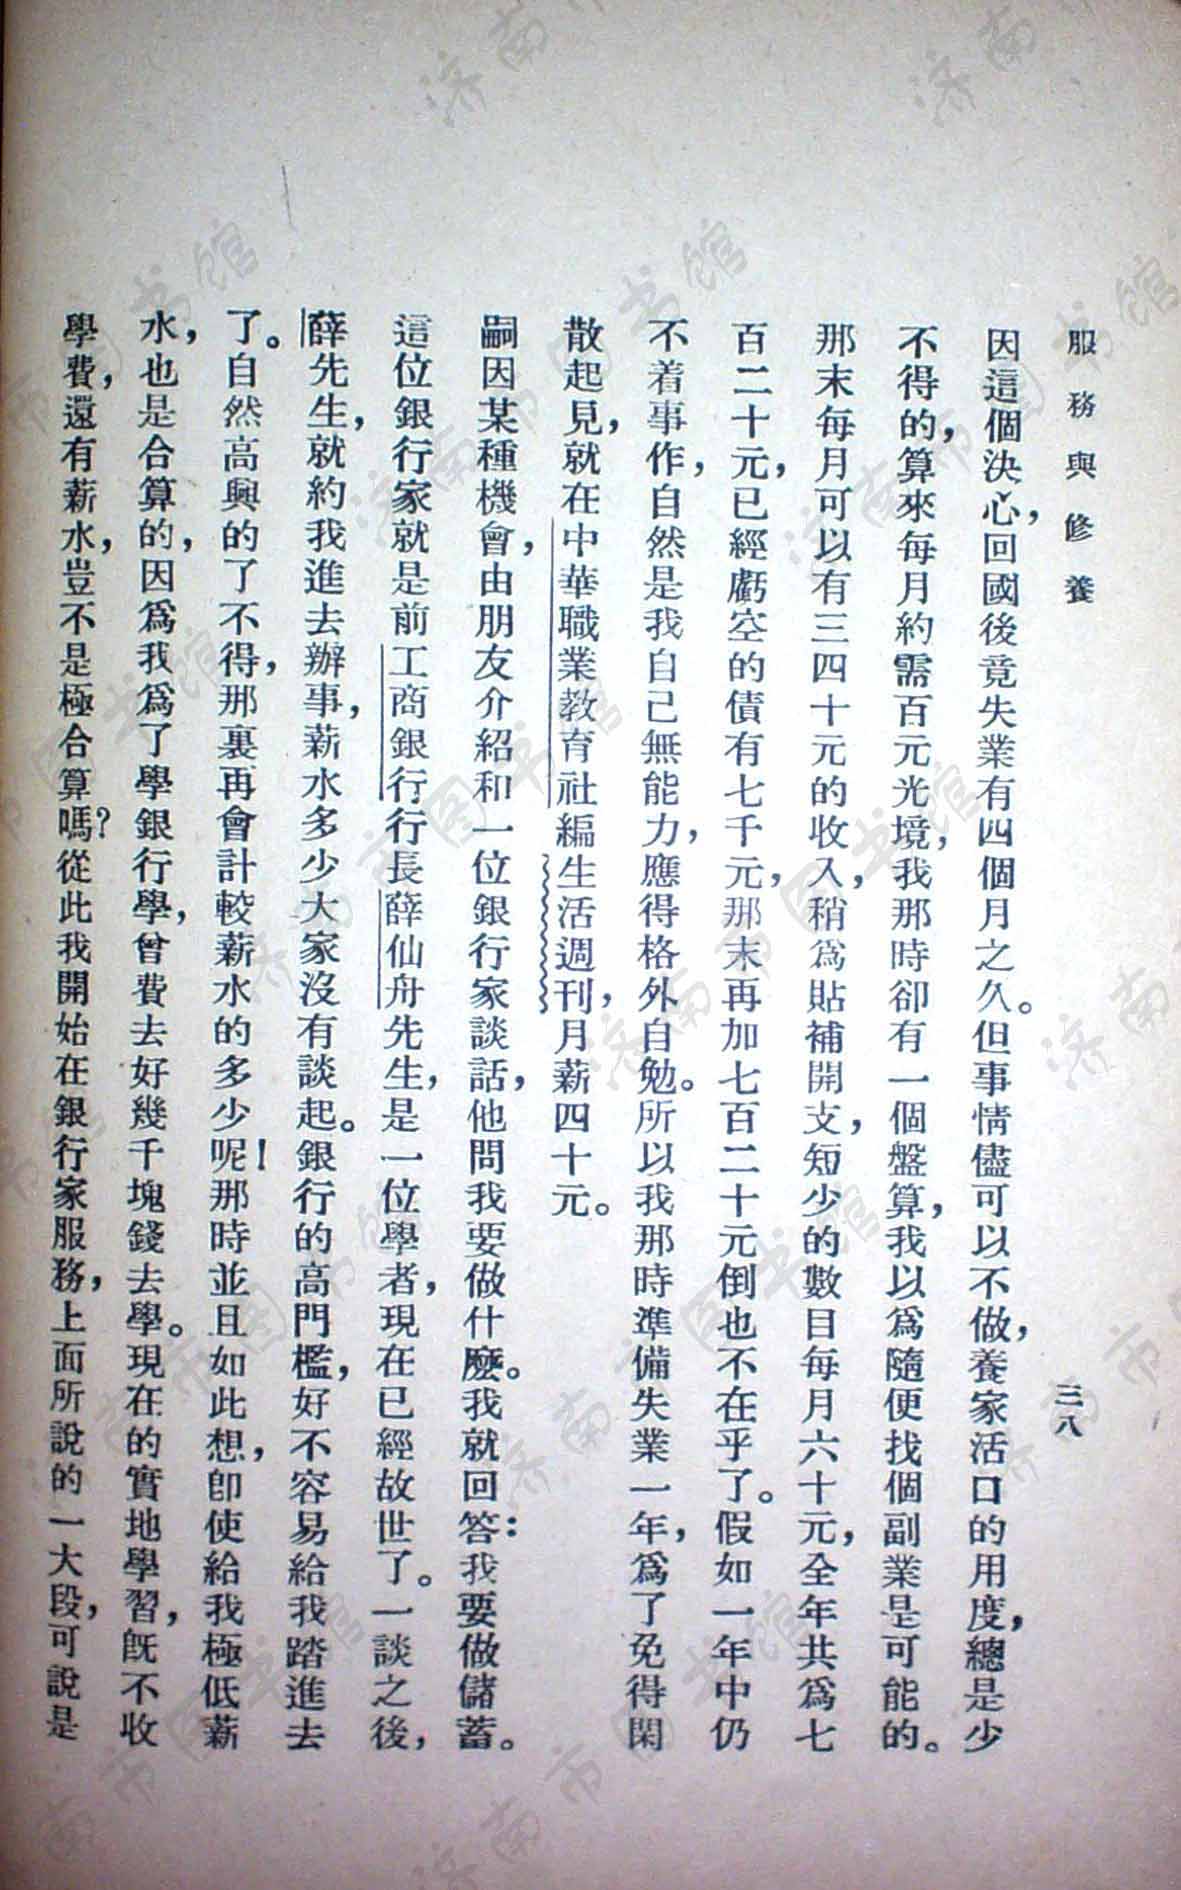 服務與修養
三八
因這個決心，回國後竟失業有四個月之久。但事情儘可以不做，養家活口的用度，總是少
不得的，算來每月約需百元光境，我那時卻有一個盤算，我以爲隨便找個副業是可能的。
那末每月可以有三四十元的收入，稍爲貼補開支，短少的數目每月六十元，全年共爲七
百二十元，已經虧空的債有七千元，那末再加七百二十元倒也不在乎了。假如一年中仍
不着事作，自然是我自己無能力，應得格外自勉。所以我那時準備失業一年，爲了免得閑
散起見，就在中華職業教育社編生活週刊，月薪四十元。
嗣因某種機會，由朋友介紹和一位銀行家談話，他問我要做什麼。我就回答：我要做儲蓄。
這位銀行家就是前工商銀行行長薛仙舟先生，是一位學者，現在已經故世了。一談之後，
薛先生，就約我進去辦事，薪水多少大家沒有談起。銀行的高門檻，好不容易給我踏進去
了。自然高興的了不得，那裏再會計較薪水的多少呢！那時並且如此想，即使給我極低薪
水，也是合算的，因爲我爲了學銀行學，曾費去好幾千塊錢去學。現在的實地學習，既不收
學費，還有薪水，豈不是極合算嗎？從此我開始在銀行家服務，上面所說的一大段，可說是
济南市图书馆